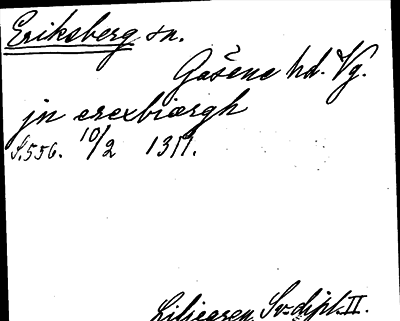 Eriksberg sn.
Gäsene hd. Vg.
jn erexbiærgh
S. 556. 10/2 1311.
Liljegren, Sv. dipl. II.